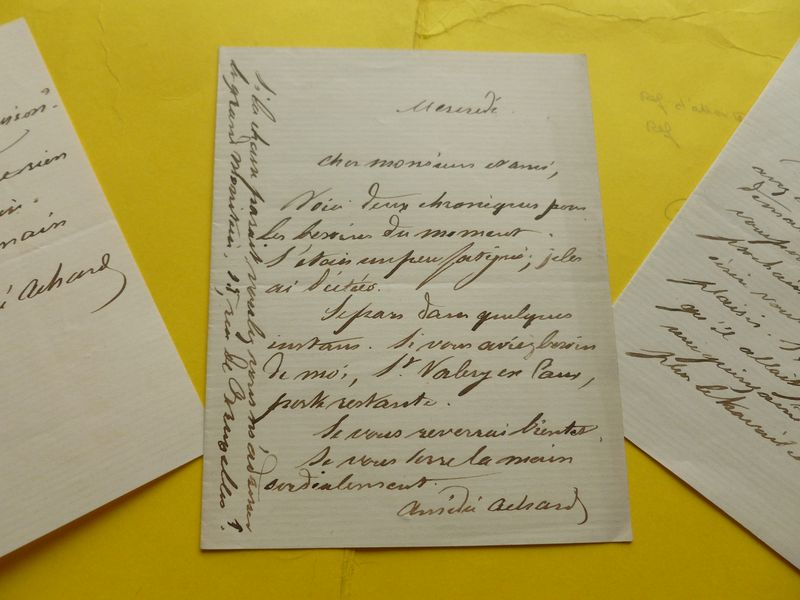 Mercredi
cher monsieur et ami,
Voici deux chroniques pour
les besoins du moment.
J'étais un peu fatigué; je les
ai dictées.
Je pars dans quelques
instans. Si vous aviez besoin
de moi, St Valery en Caux,
poste restante.
Je vous reverrai bientot.
Je vous serre la main
cordialement.
Amédée Achard
Si la chose parait, voulez vous m'adresser
le grand Moniteur. 35, rue de Bruxelles.
rien
main
Achard
Ref
Ref
plaisir.
qu'il